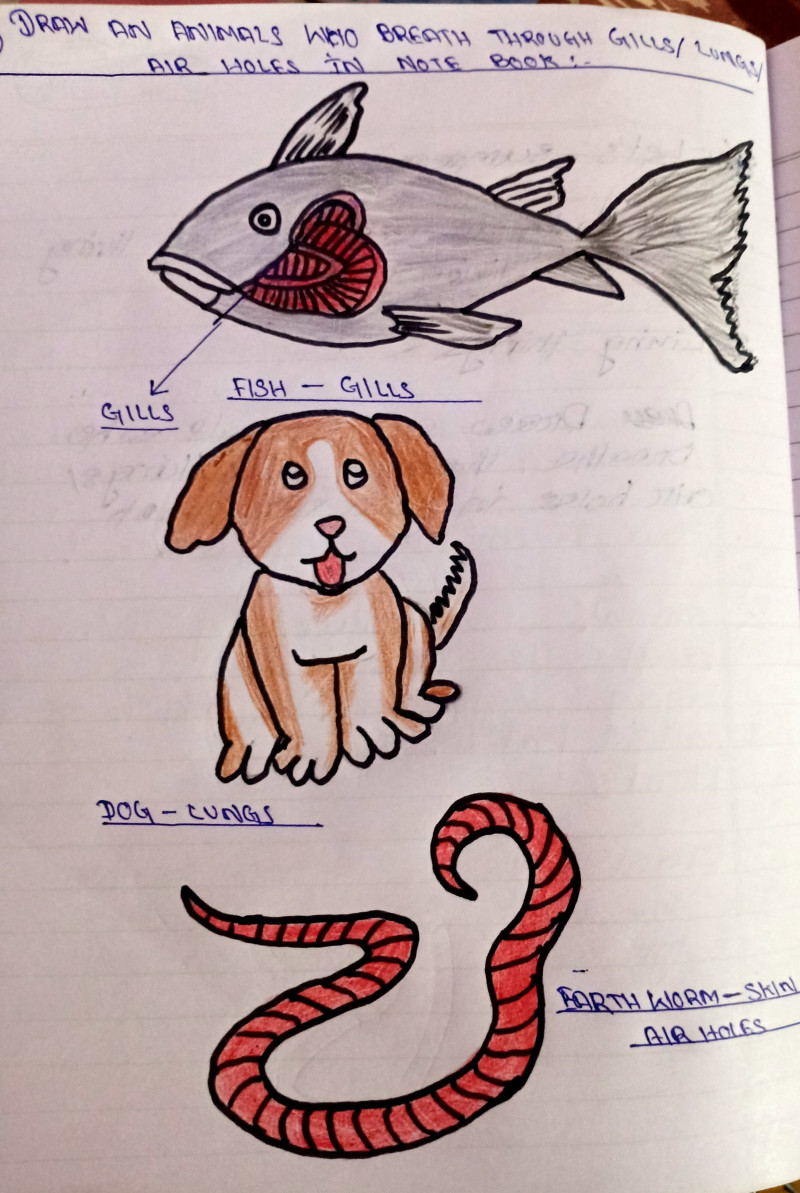 DRAW AN ANIMALS WHO BREATH THROUGH GILLS/ LUNGS/
AIR HOLES IN NOTE BOOK:-
GILLS
FISH - GILLS
DOG - LUNGS
EARTH WORM - SKIN
AIR HOLES